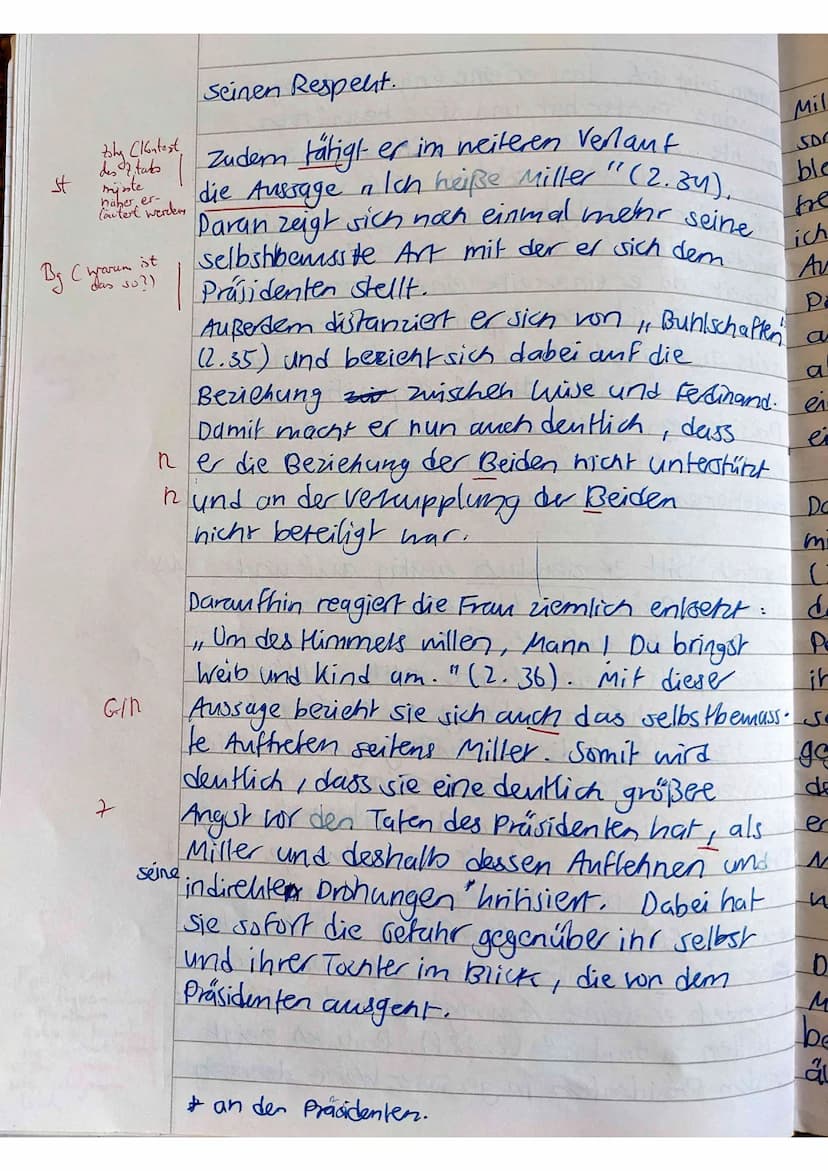 seinen Respekt.
Zudem tätigt er im weiteren Verlauf
die Aussage „Ich heiße Miller" (Z.34).
Daran zeigt sich noch einmal mehr seine
selbstbewusste Art mit der er sich dem
Präsidenten stellt.
Außerdem distanziert er sich von „Buhlschaften"
(Z.35) und bezieht sich dabei auf die
Beziehung zwischen Luise und Ferdinand.
Damit macht er nun auch deutlich, dass
er die Beziehung der Beiden nicht unterstützt
und an der Verkupplung der Beiden
nicht beteiligt war.
Daraufhin reagiert die Frau ziemlich entsetzt:
„Um des Himmels willen, Mann! Du bringst
Weib und Kind um." (Z. 36). Mit dieser
Aussage bezieht sie sich auch das selbstbewuss-
te Auftreten seitens Miller. Somit wird
deutlich, dass sie eine deutlich größere
Angst vor den Taten des Präsidenten hat, als
Miller und deshalb dessen Auflehnen und
seine indirekten Drohungen * kritisiert. Dabei hat
sie sofort die Gefahr gegenüber ihr selbst
und ihrer Tochter im Blick, die von dem
Präsidenten ausgeht.
* an den Präsidenten.
st
(Kontext
des Zitats
müsste
näher er-
läutert werden
Bg (warum ist
das so?)
n
n
G/n